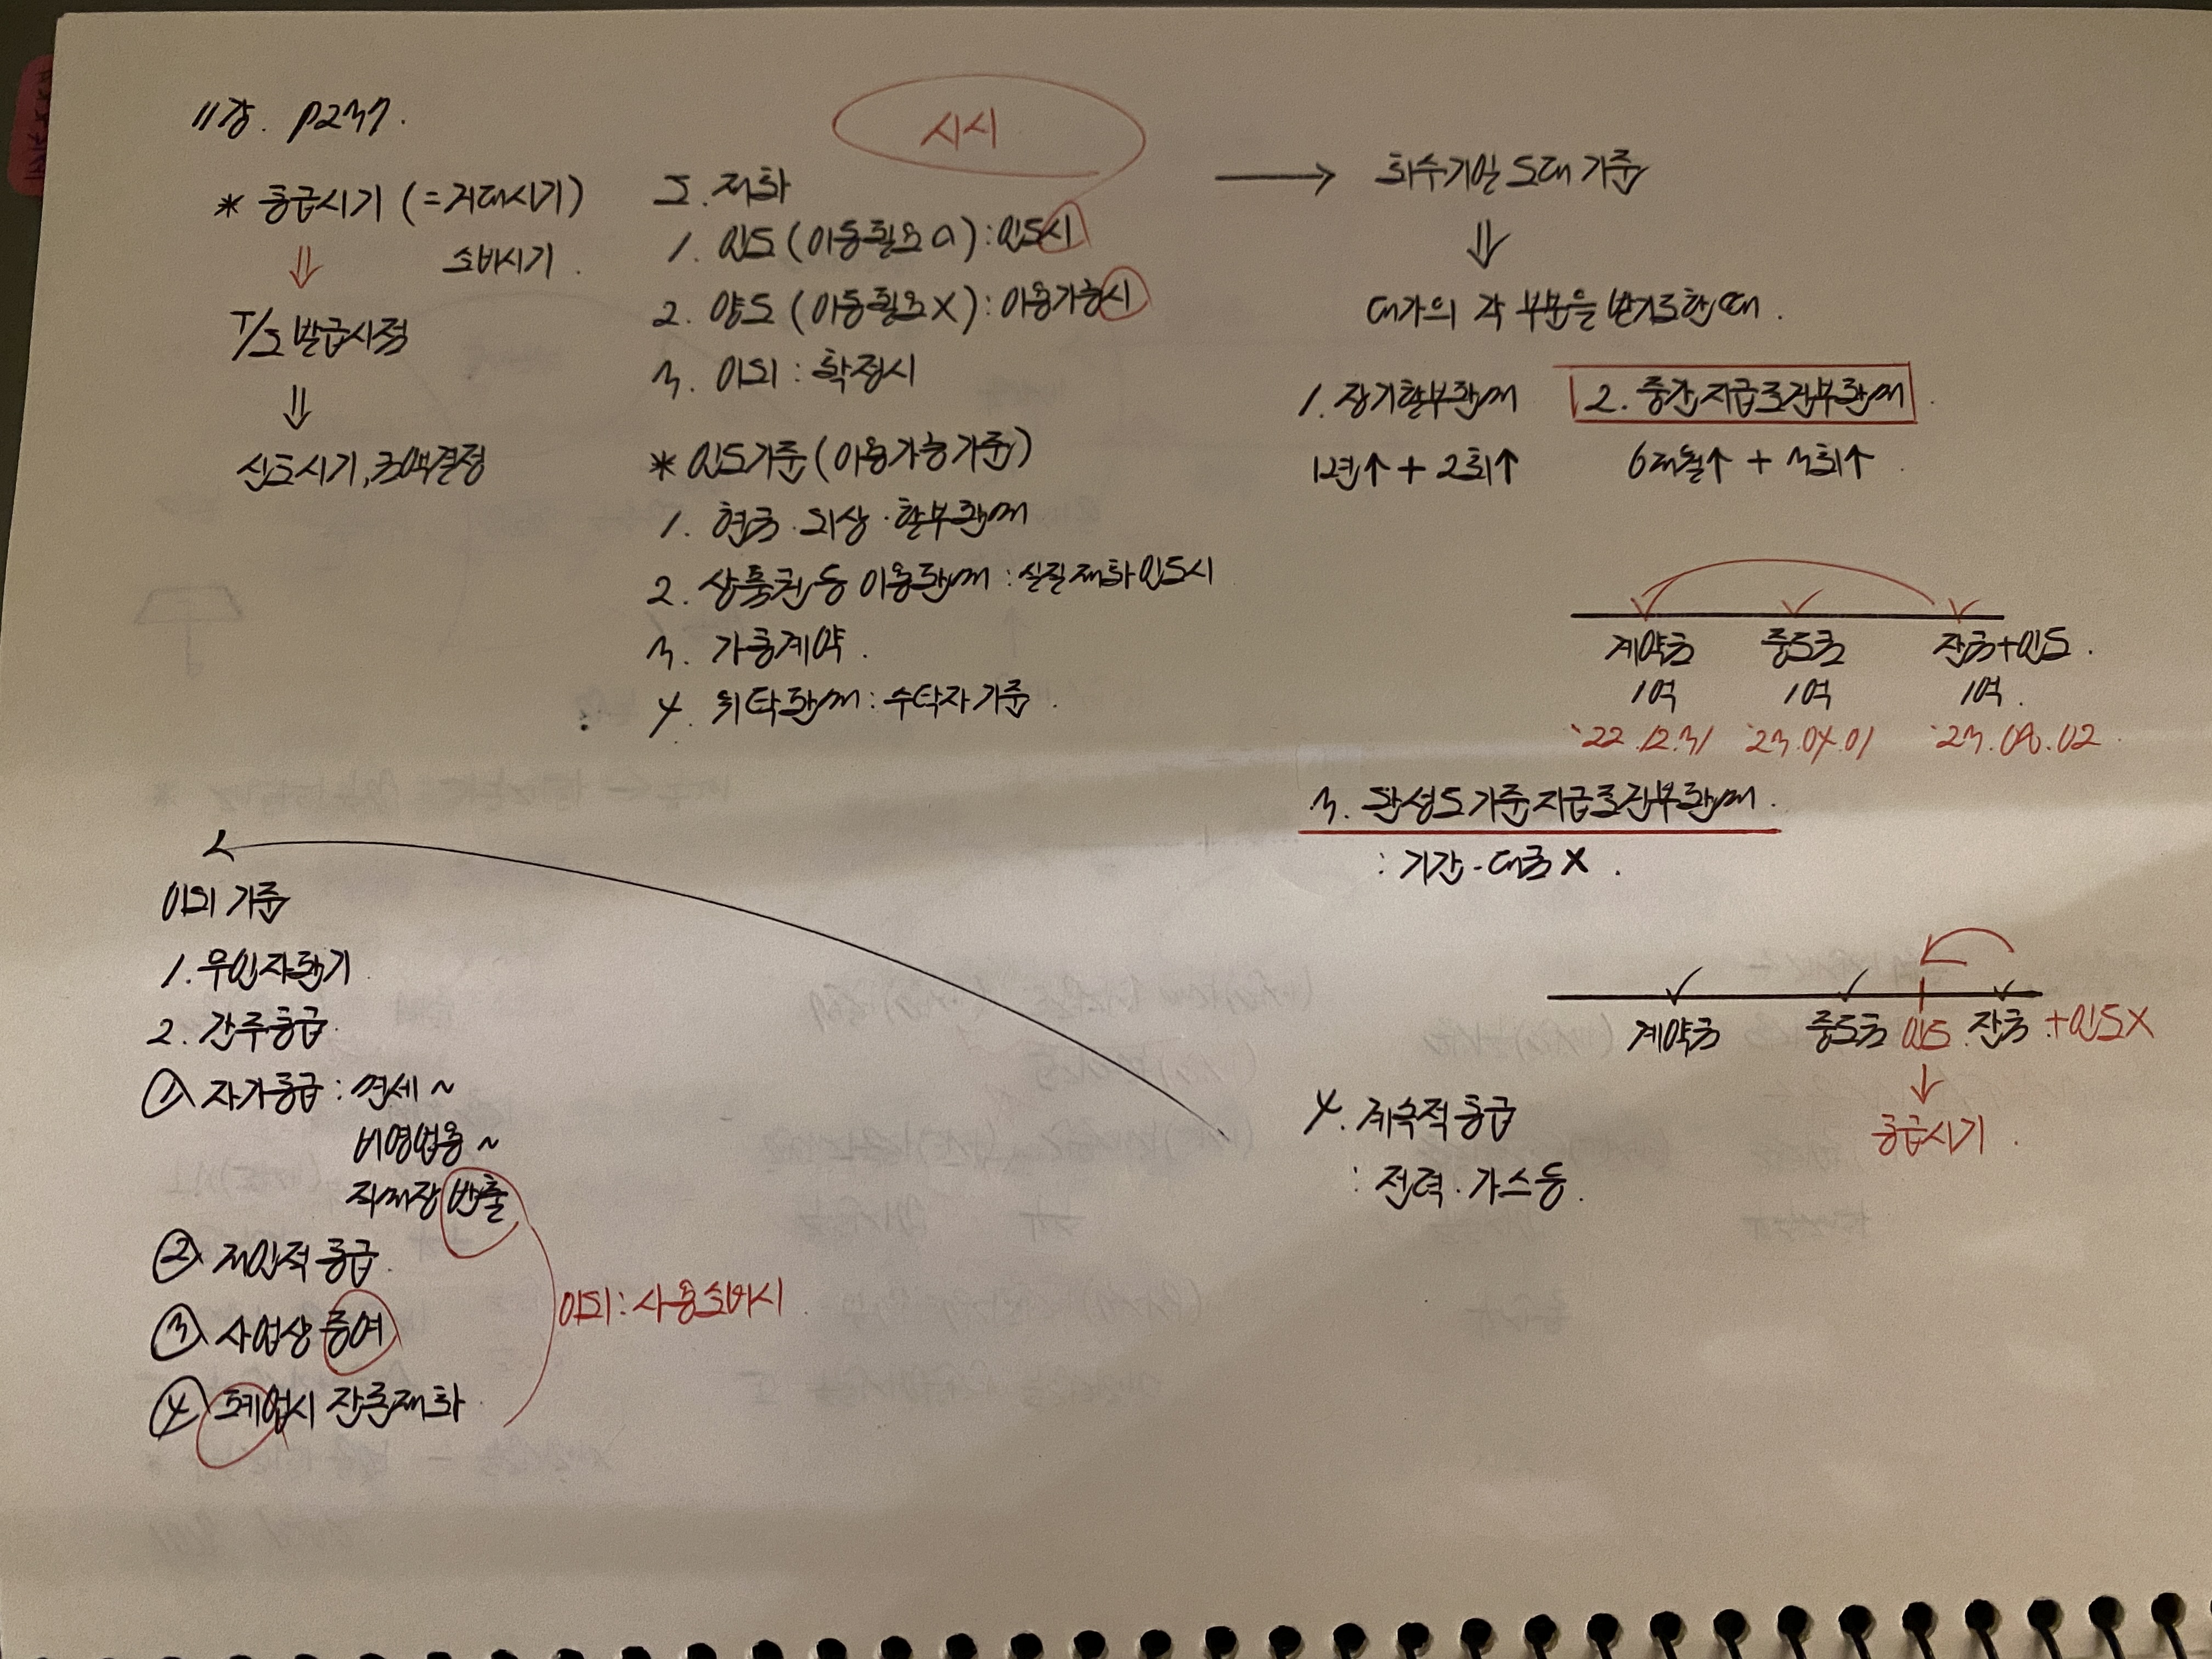 11강. P237.
* 공급시기 (=거래시기)
소비시기.
⇓
T/I 발급시점
⇓
신고시기, 금액결정
시시
I. 재화
1. 인도 (이동필요 O) : 인도시
2. 양도 (이동필요 X) : 이용가능시
3. 이외 : 확정시
* 인도기준 (이용가능기준)
1. 현금·외상·할부판매
2. 상품권 등 이용판매 : 실질 재화 인도시
3. 가공계약.
4. 위탁판매 : 수탁자 기준.
→ 회수기일 도래 기준
⇓
대가의 각 부분을 받기로 한 때.
1. 장기할부판매
12월↑ + 2회↑
2. 중간지급조건부판매.
6개월↑ + 3회↑.
계약금 중도금 잔금+인도.
1억 1억 1억.
`22.12.31 `23.04.01 `23.08.02.
3. 완성도기준지급조건부판매.
: 기간·대금 X.
계약금 중도금 인도 잔금 +인도X
↓
공급시기.
4. 계속적 공급
: 전력·가스 등.
이외 기준
1. 무인자판기
2. 간주공급.
① 자가공급 : 면세 ~
비영업용 ~
직매장 반출
② 개인적 공급.
③ 사업상 증여
④ 폐업시 잔존재화.
이외 : 사용소비시.